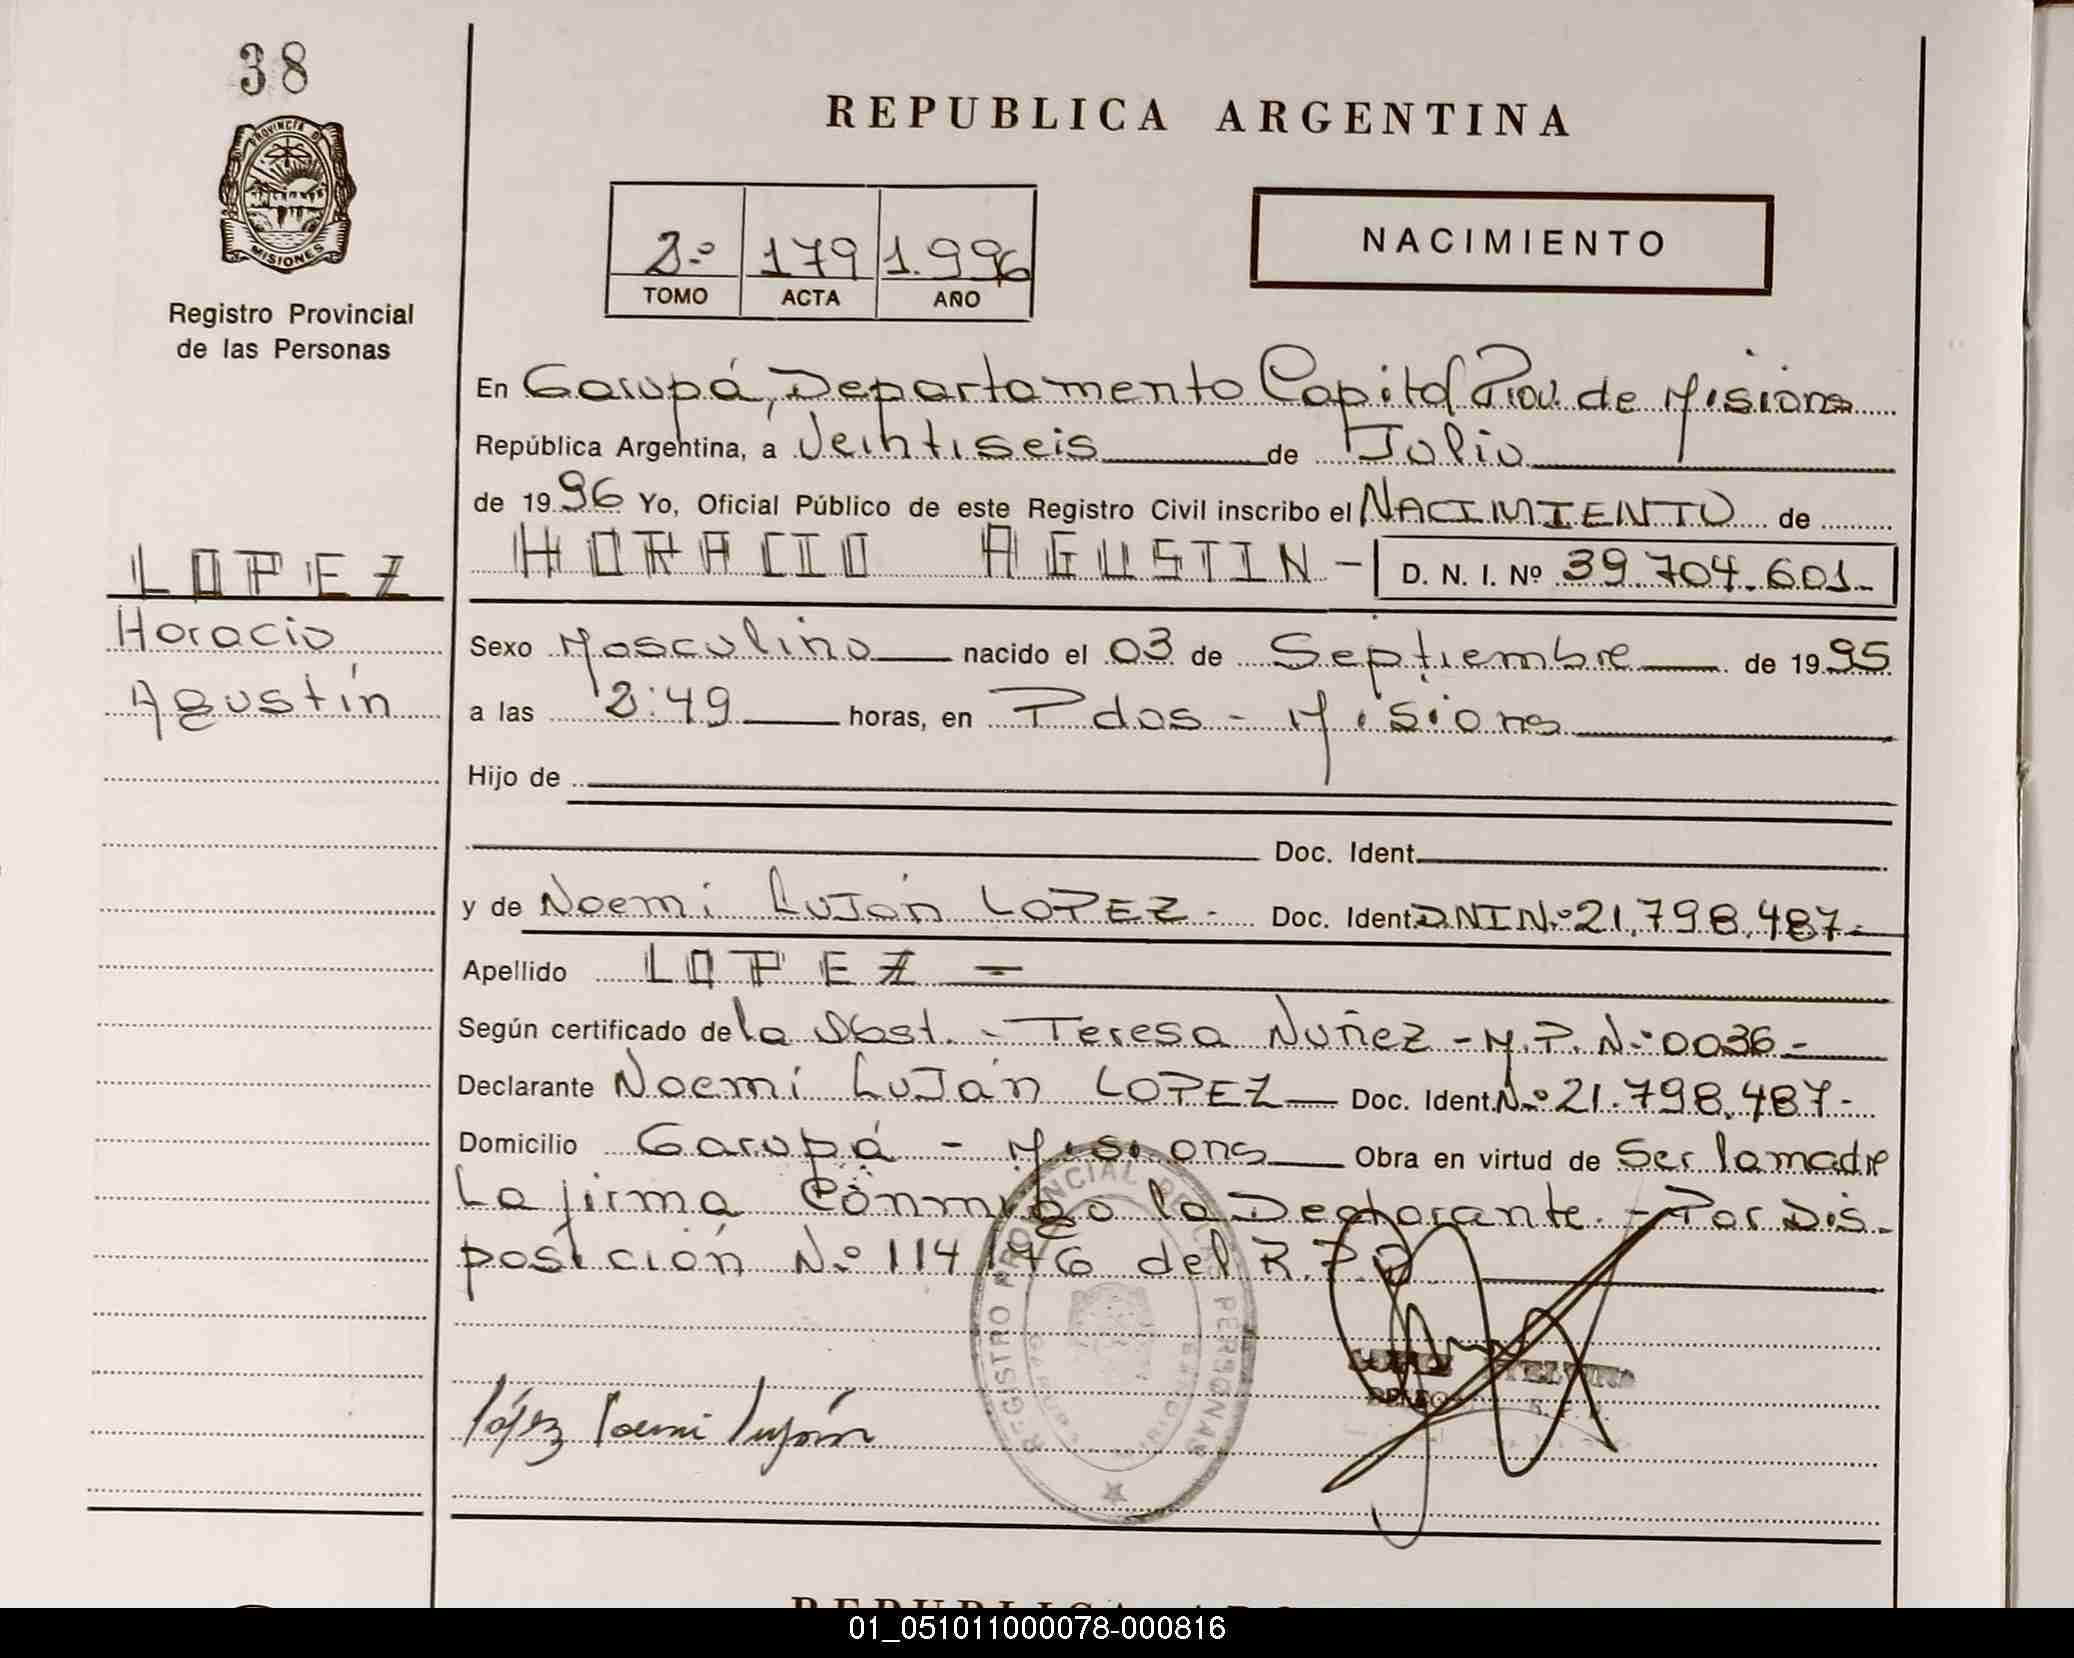 38
REPUBLICA ARGENTINA
PROVINCIA DE MISIONES
Registro Provincial
de las Personas
2º 179 1.996
TOMO ACTA AÑO
NACIMIENTO
En Garupá, Departamento Capital Prov. de Misiones
República Argentina, a Veintiseis de Julio
de 1996 Yo, Oficial Público de este Registro Civil inscribo el NACIMIENTO de
LOPEZ
Horacio
Agustín
HORACIO AGUSTIN - D. N. I. Nº 39.704.601-
Sexo Masculino nacido el 03 de Septiembre de 1995
a las 2:49 horas, en Pdas - Misiones
Hijo de
Doc. Ident.
y de Noemi Luján LOPEZ - Doc. Ident. DNI Nº 21.798.487-
Apellido LOPEZ =
Según certificado de la Obst. - Teresa Nuñez - M.P. Nº 0036-
Declarante Noemí Luján LOPEZ Doc. Ident. Nº 21.798.487-
Domicilio Garupá - Misiones Obra en virtud de Ser la madre
La firma Conmigo la Declarante. - Por Dis-
posición Nº 114/96 del R.P.P
REGISTRO PROVINCIAL DE LAS PERSONAS
López Noemi Luján
REPUBLICA ARG
01_051011000078-000816